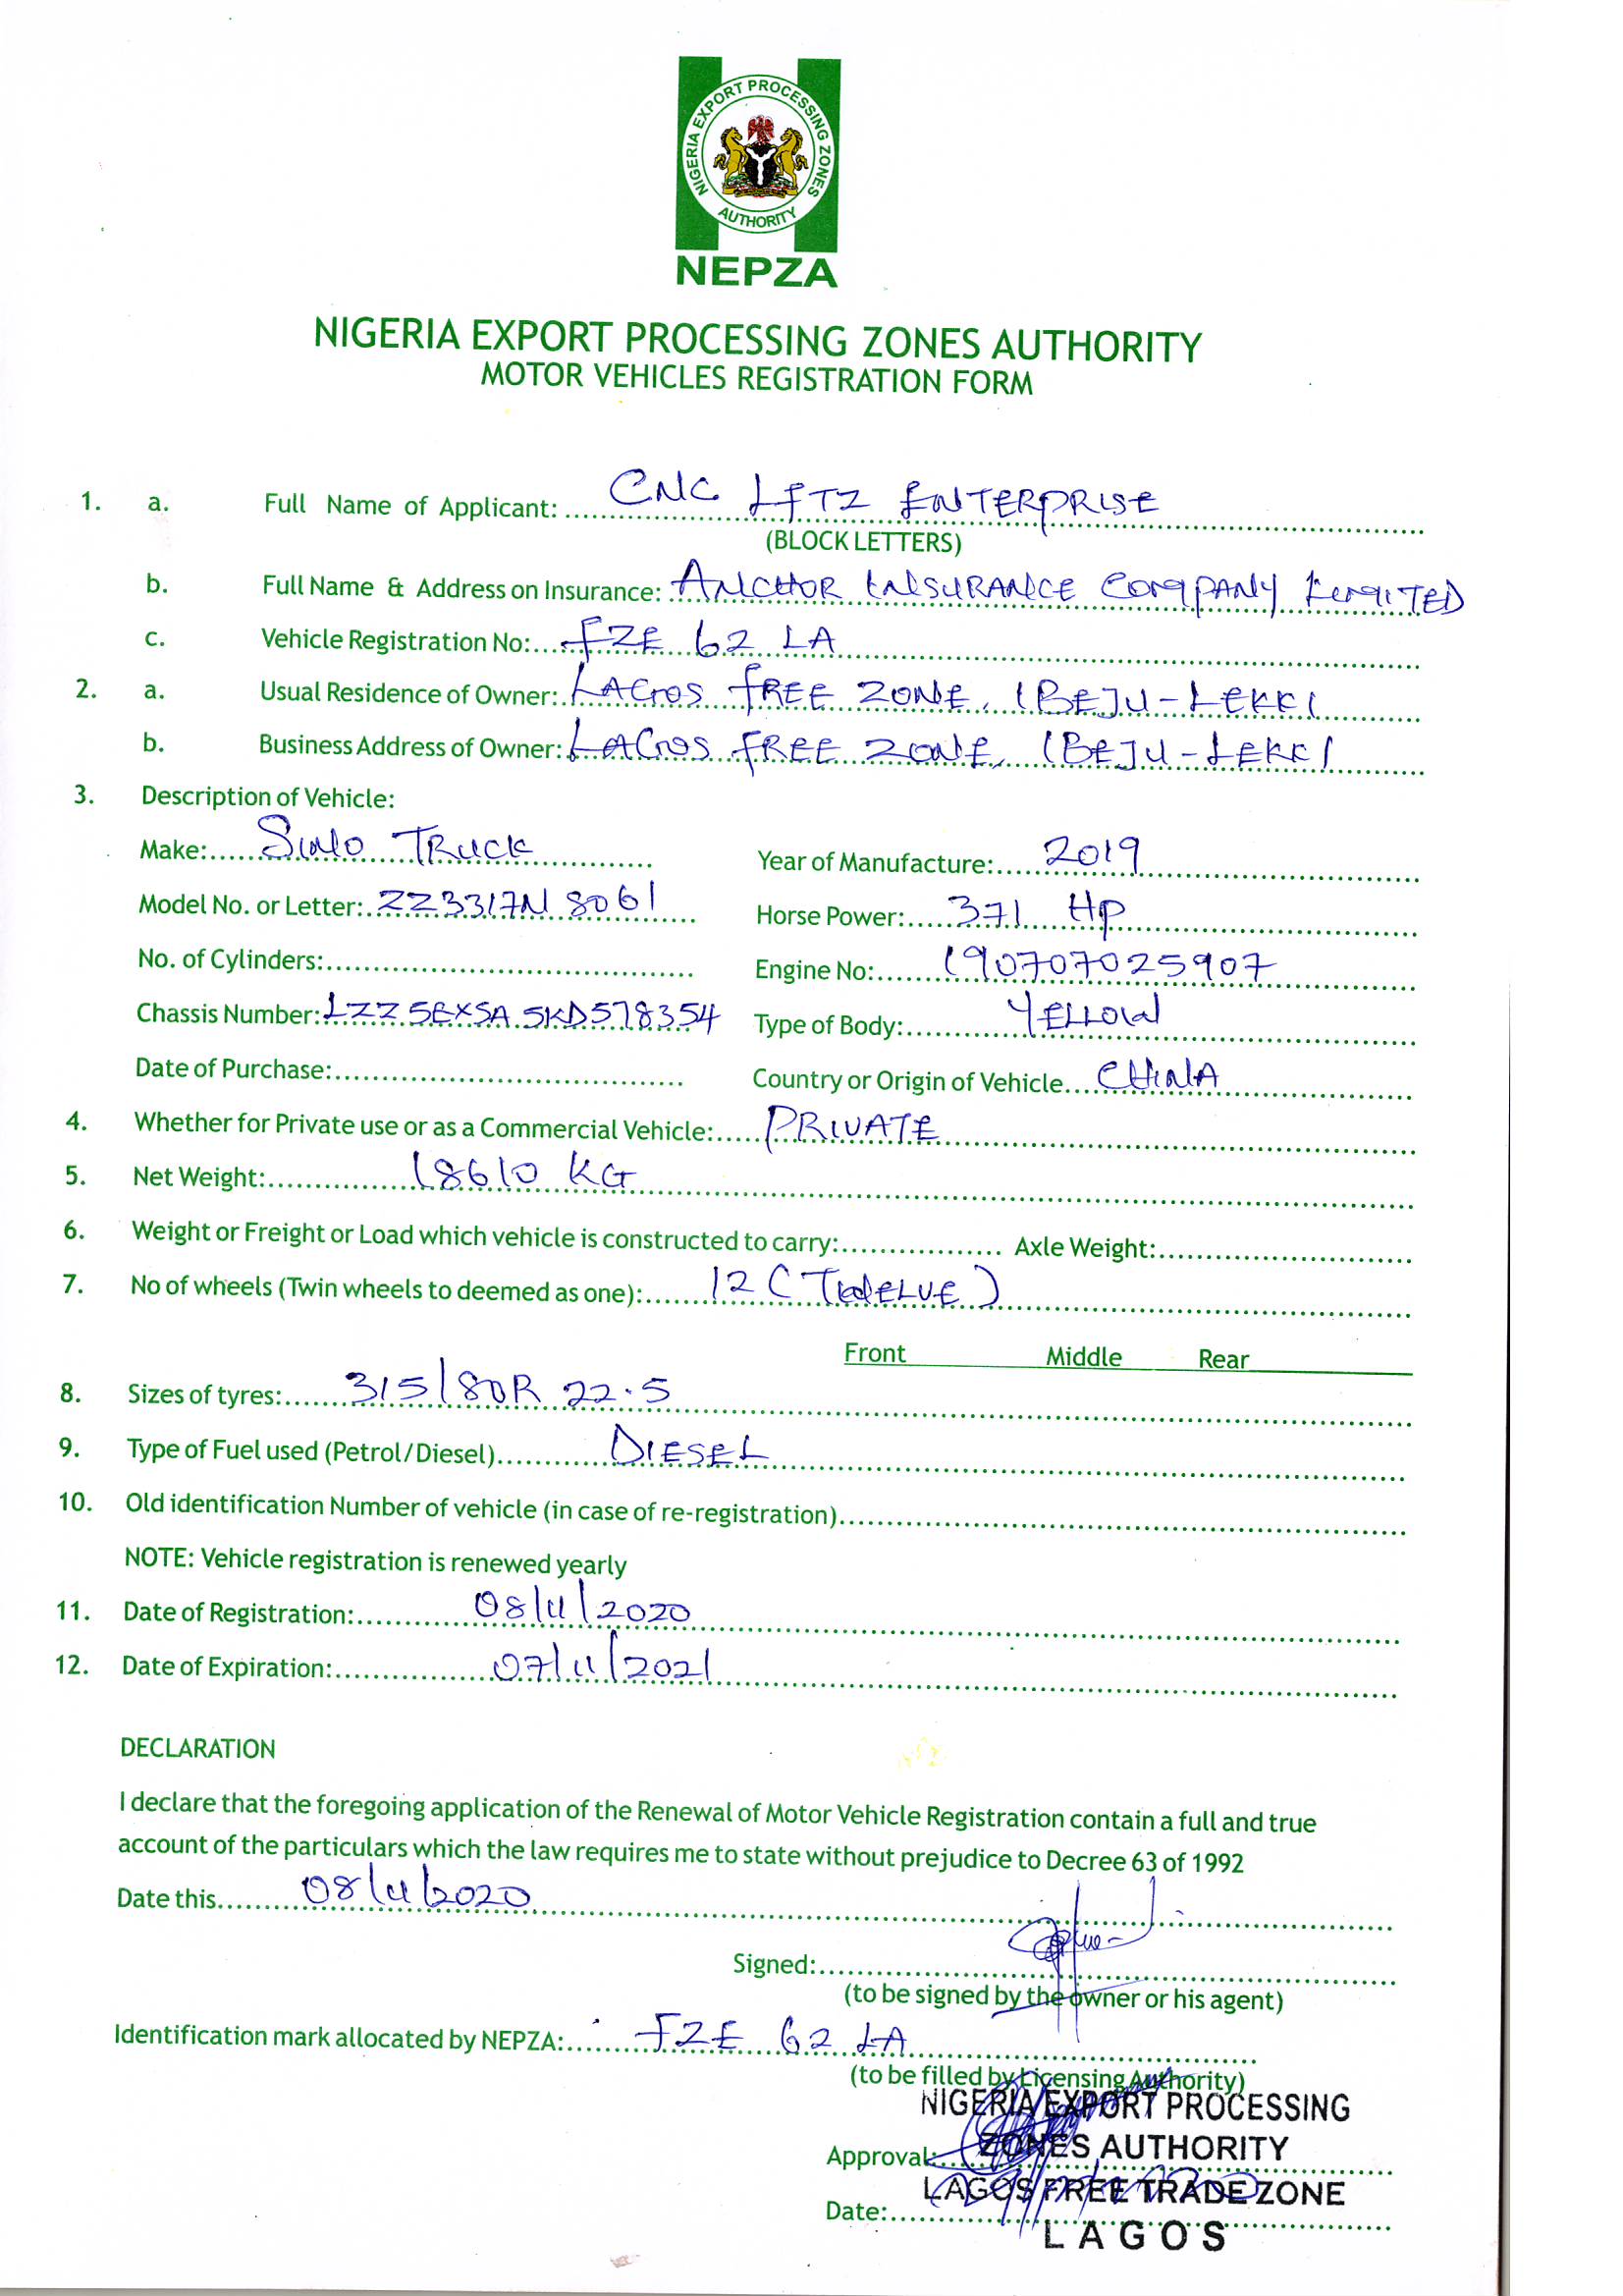 NIGERIA EXPORT PROCESSING ZONES
AUTHORITY
NEPZA
NIGERIA EXPORT PROCESSING ZONES AUTHORITY
MOTOR VEHICLES REGISTRATION FORM
1. a. Full Name of Applicant: CNC LFTZ ENTERPRISE
(BLOCK LETTERS)
b. Full Name & Address on Insurance: ANCHOR INSURANCE COMPANY LIMITED
c. Vehicle Registration No: FZE 62 LA
2. a. Usual Residence of Owner: LAGOS FREE ZONE, IBEJU-LEKKI
b. Business Address of Owner: LAGOS FREE ZONE, IBEJU-LEKKI
3. Description of Vehicle:
Make: SINO TRUCK Year of Manufacture: 2019
Model No. or Letter: ZZ3317N8061 Horse Power: 371 HP
No. of Cylinders: Engine No: 190707025907
Chassis Number: LZZ5EXSA5KD578354 Type of Body: YELLOW
Date of Purchase: Country or Origin of Vehicle CHINA
4. Whether for Private use or as a Commercial Vehicle: PRIVATE
5. Net Weight: 18610 KG
6. Weight or Freight or Load which vehicle is constructed to carry: Axle Weight:
7. No of wheels (Twin wheels to deemed as one): 12 (TWELVE)
Front Middle Rear
8. Sizes of tyres: 315/80R 22.5
9. Type of Fuel used (Petrol/Diesel) DIESEL
10. Old identification Number of vehicle (in case of re-registration)
NOTE: Vehicle registration is renewed yearly
11. Date of Registration: 08/11/2020
12. Date of Expiration: 07/11/2021
DECLARATION
I declare that the foregoing application of the Renewal of Motor Vehicle Registration contain a full and true
account of the particulars which the law requires me to state without prejudice to Decree 63 of 1992
Date this 08/11/2020
Signed:
(to be signed by the owner or his agent)
Identification mark allocated by NEPZA: FZE 62 LA
(to be filled by Licensing Authority)
NIGERIA EXPORT PROCESSING
ZONES AUTHORITY
Approval:
LAGOS FREE TRADE ZONE
Date:
LAGOS